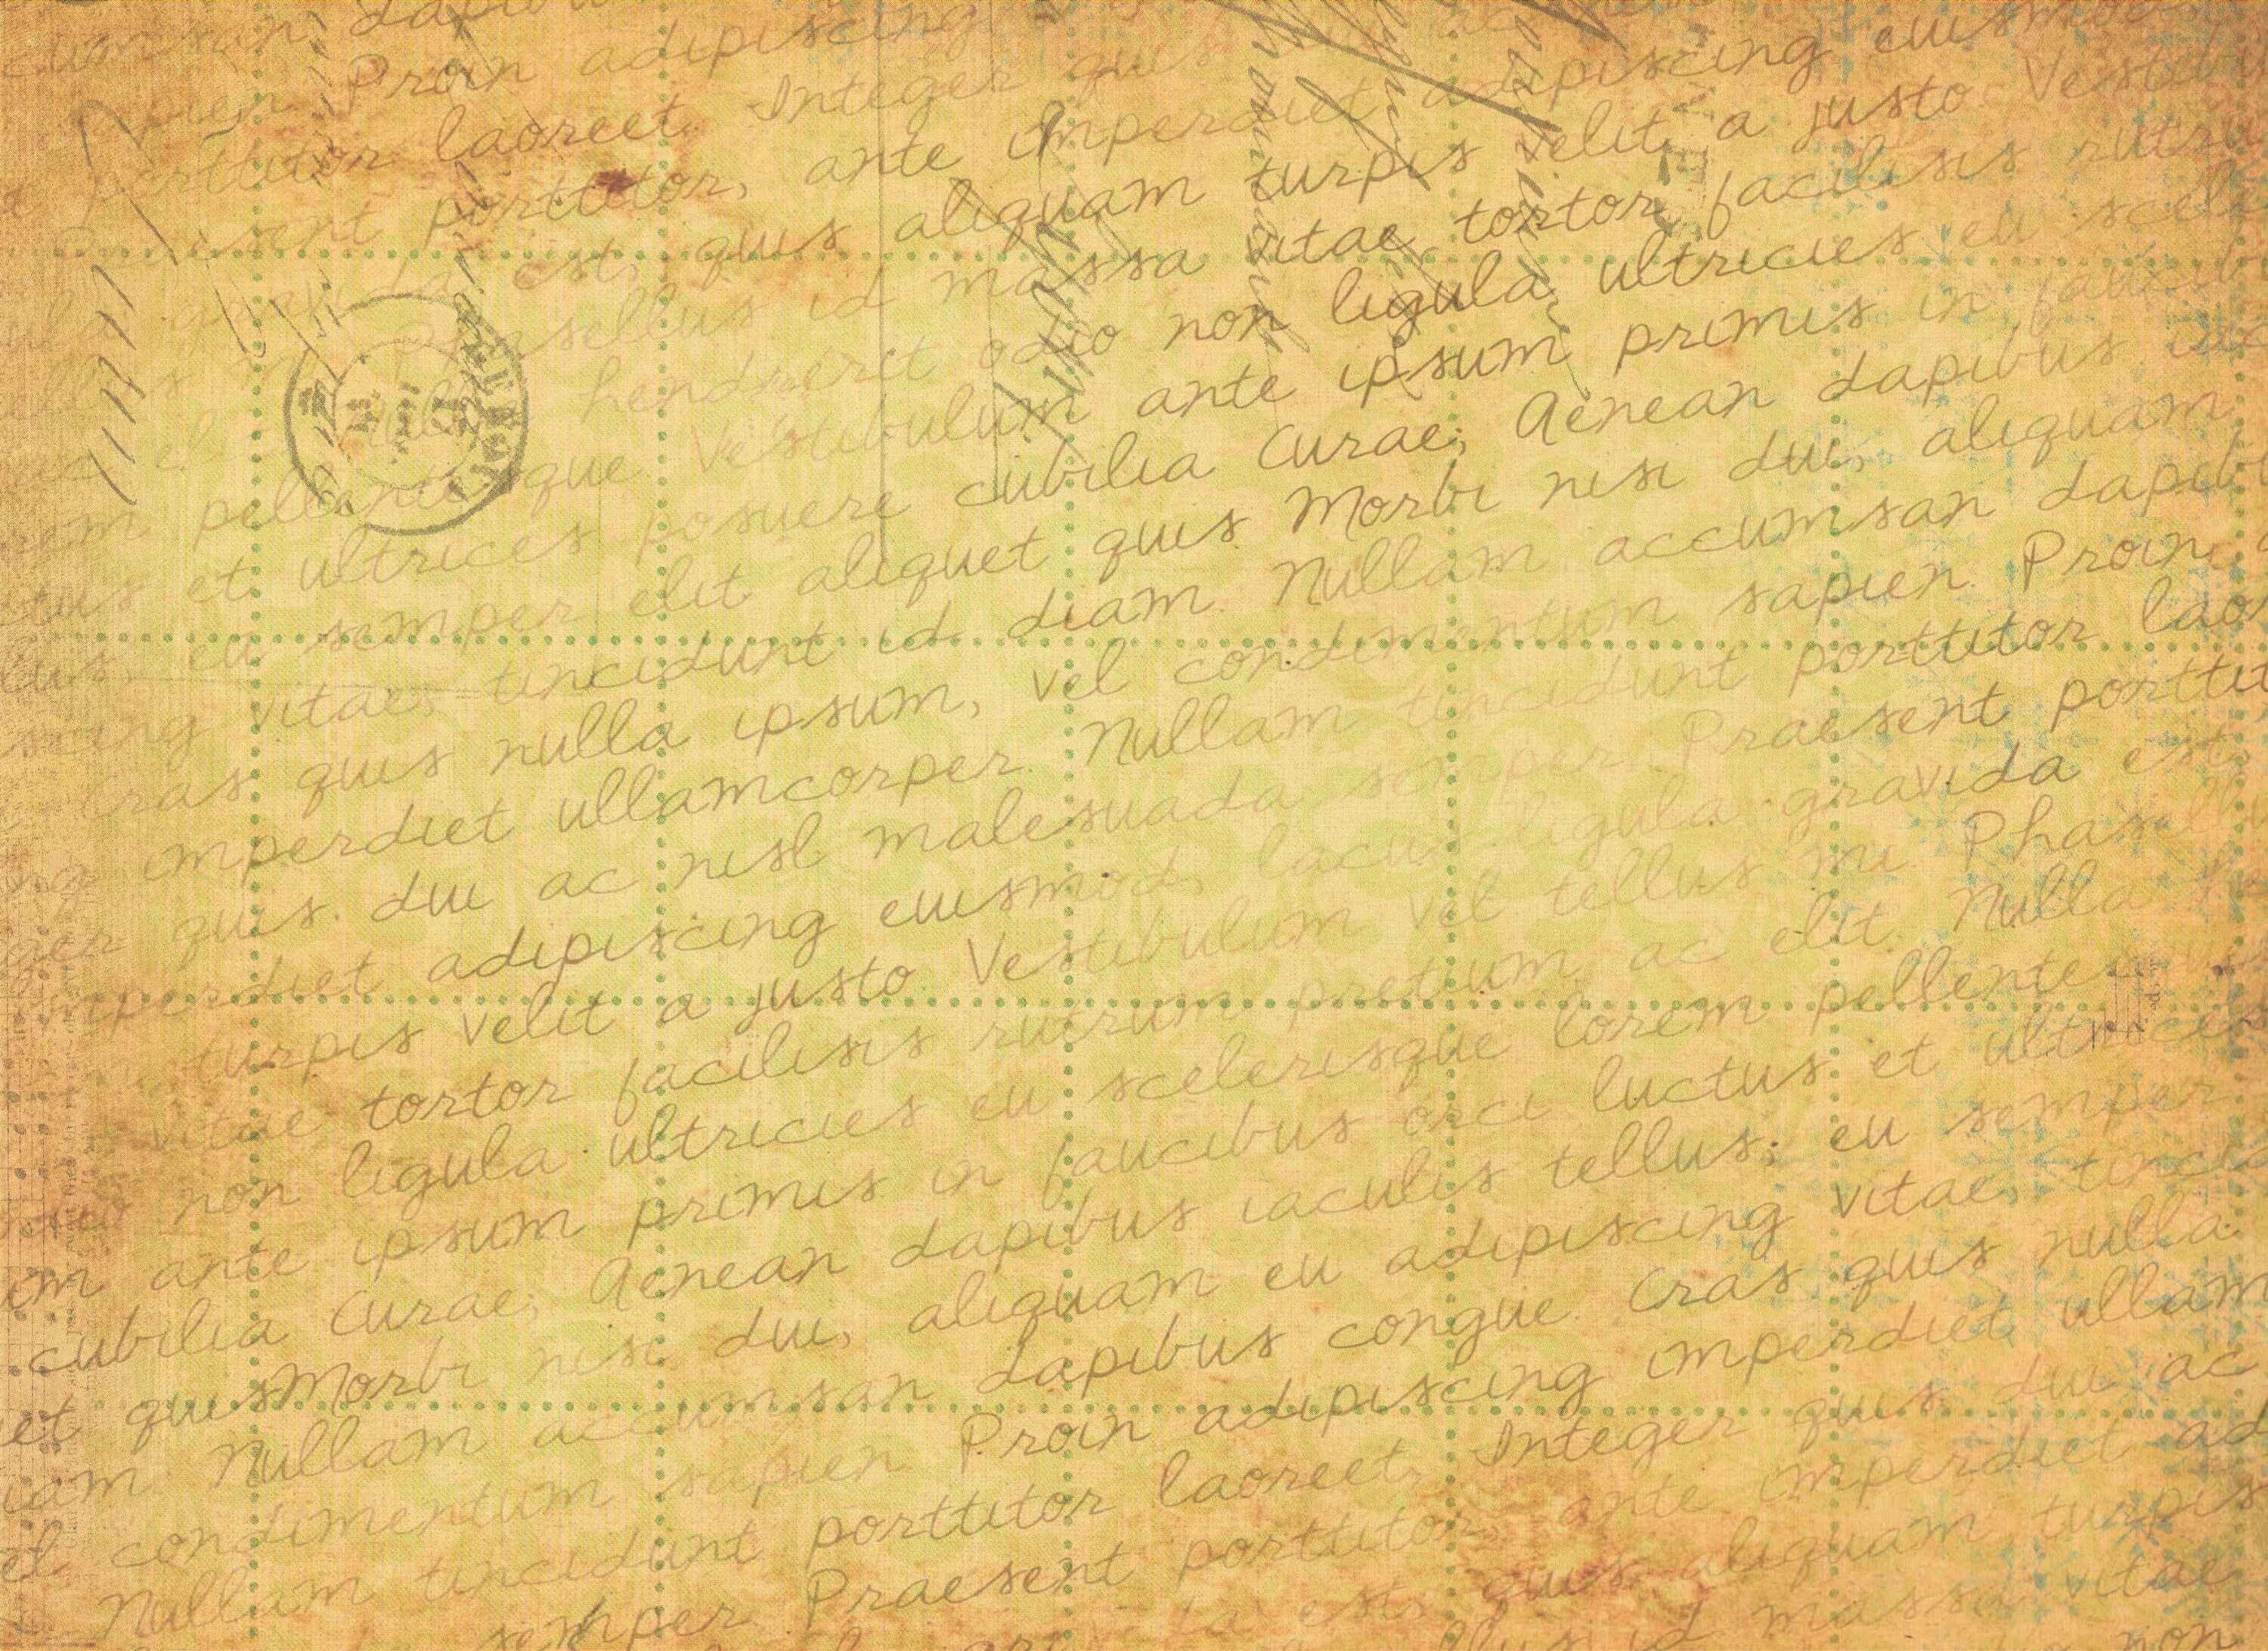 accumsan dapibus
sapien Proin adipiscing
porttitor laoreet. Integer quis
Praesent porttitor, ante imperdiet adipiscing euismod
gravida est, quis aliquam turpis velit a justo Vestibu
Phasellus id massa vitae tortor facilisis rutru
hendrerit odio non ligula ultricies eu scele
rem pellentesque Vestibulum ante ipsum primis in faucib
ctus et ultrices posuere cubilia Curae; Aenean dapibus iac
llus, eu semper elit aliquet quis Morbi nisi dui, aliquam
scing vitae, tincidunt id diam. Nullam accumsan dapib
Cras quis nulla ipsum, vel condimentum sapien. Proin
ng imperdiet ullamcorper. Nullam tincidunt porttitor laor
ger quis dui ac nisl malesuada semper. Praesent porttit
imperdiet adipiscing euismod, lacus ligula gravida est,
turpis velit a justo Vestibulum vel tellus mi. Phasellu
vitae tortor facilisis rutrum pretium, ac elit. Nulla
odio non ligula ultricies eu scelerisque lorem pellentesque
um ante ipsum primis in faucibus orci luctus et ultrices
cubilia Curae; Aenean dapibus iaculis tellus; eu semper
et quis Morbi nisi dui, aliquam eu adipiscing vitae, tincid
iam. Nullam accumsan dapibus congue. Cras quis nulla
el condimentum sapien Proin adipiscing imperdiet ullam
Nullam tincidunt porttitor laoreet. Integer quis dui ac
semper Praesent porttitor, ante imperdiet ad
est, quis aliquam turpis
id massa vitae
non